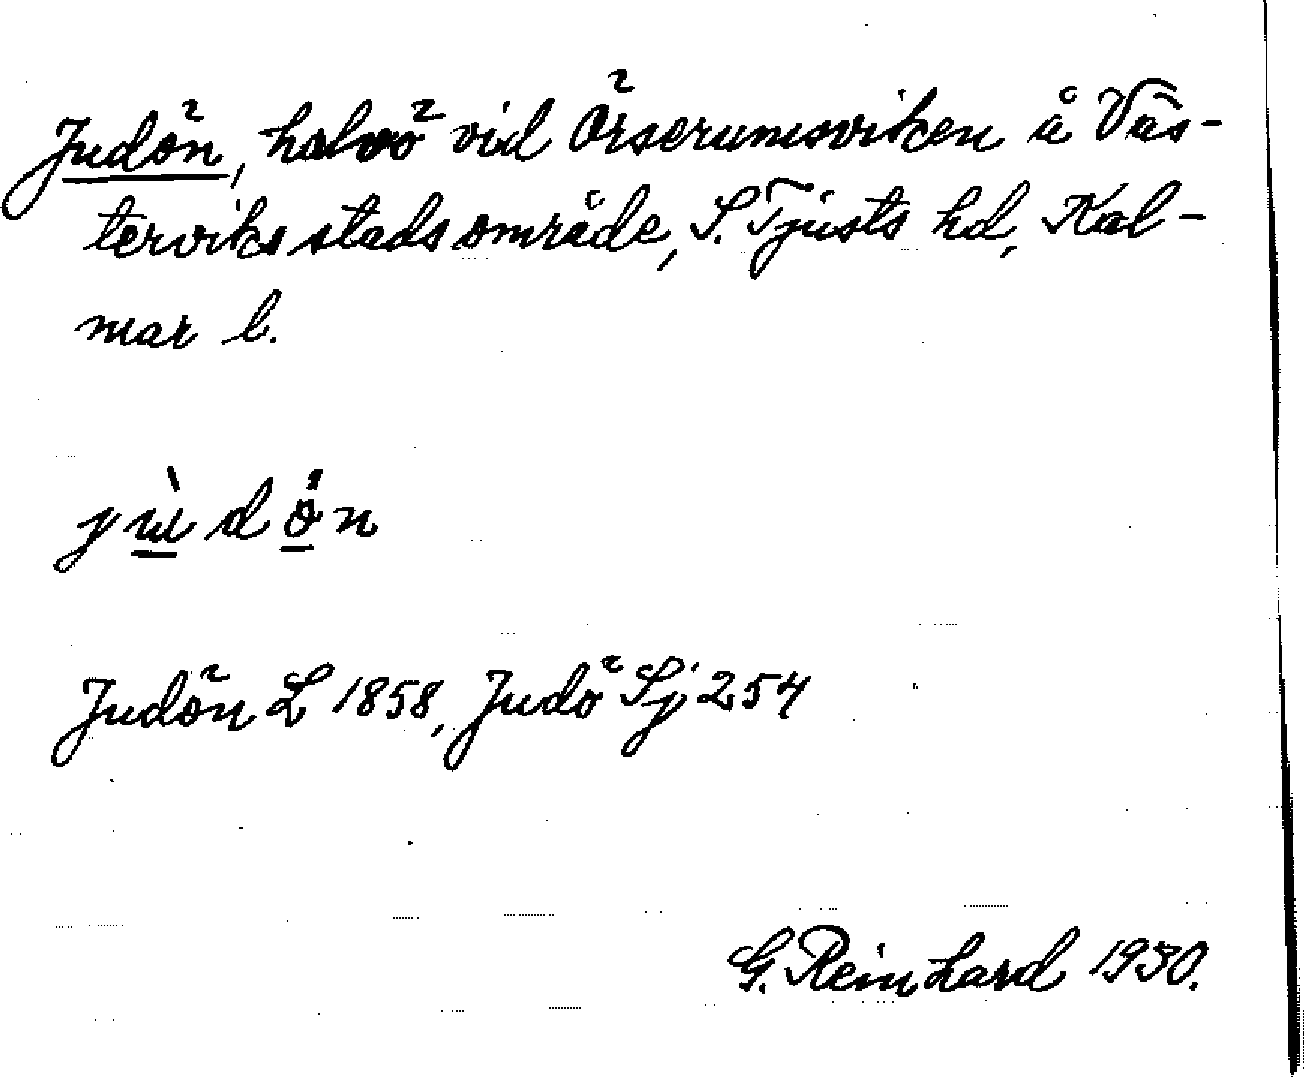 Judön, halvö vid Örserumsviken å Väs-
terviks stads område, S. Tjusts hd, Kal-
mar l.
jùdön
Judön L 1858, Judö Sj 254
G. Reinhard 1930.